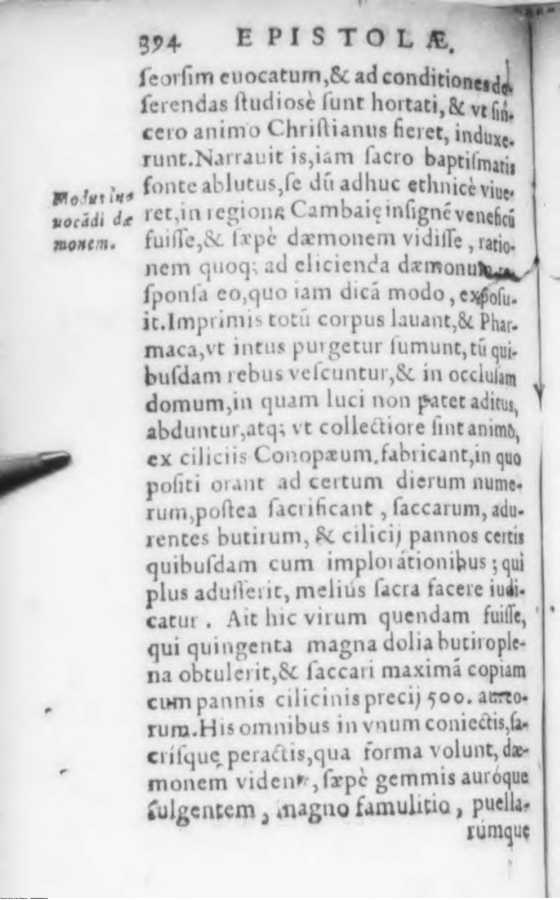 394 EPISTOLÆ.
ſeorſim euocatum,& ad conditiones de-
ferendas ſtudiosè ſunt hortati,& vt ſin-
cero animo Chriſtianus fieret, induxe-
runt.Narrauit is,iam ſacro baptiſmatis
fonte ablutus,ſe dū adhuc ethnicè viue-
ret,in regione Cambaię inſignē veneficū
fuiſſe,& ſæpè dæmonem vidiſſe, ratio-
nem quoq; ad elicienda dæmonum re-
ſponſa eo,quo iam dicā modo, expoſu-
it.Imprimis totū corpus lauant,& Phar-
maca,vt intus purgetur ſumunt, tū qui-
buſdam rebus veſcuntur,& in occluſam
domum,in quam luci non patet aditus,
abduntur,atq; vt collectiore ſint animo,
ex ciliciis Conopæum.fabricant,in quo
poſiti orant ad certum dierum nume-
rum,poſtea ſacrificant, ſaccarum, adu-
rentes butirum, & cilicij pannos certis
quibuſdam cum imploratiónibus; qui
plus aduſſerit, meliús ſacra facere iudi-
catur. Ait hic virum quendam fuiſſe,
qui quingenta magna dolia butiro ple-
na obtulerit,& ſaccari maximā copiam
cum pannis cilicinis precij 500. aureo-
rum.His omnibus in vnum coniectis,ſa-
criſque peractis,qua forma volunt, dæ-
monem vident, ſæpè gemmis auróque
fulgentem, magno famulitio, puella-
rúmque
Modus in-
uocādi dæ
monem.